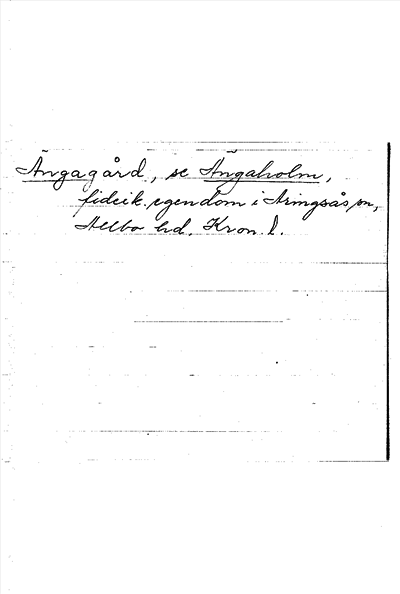 Ängagård, se Ängaholm,
fideik. egendom i Aringsås sn,
Allbo hd, Kron. l.